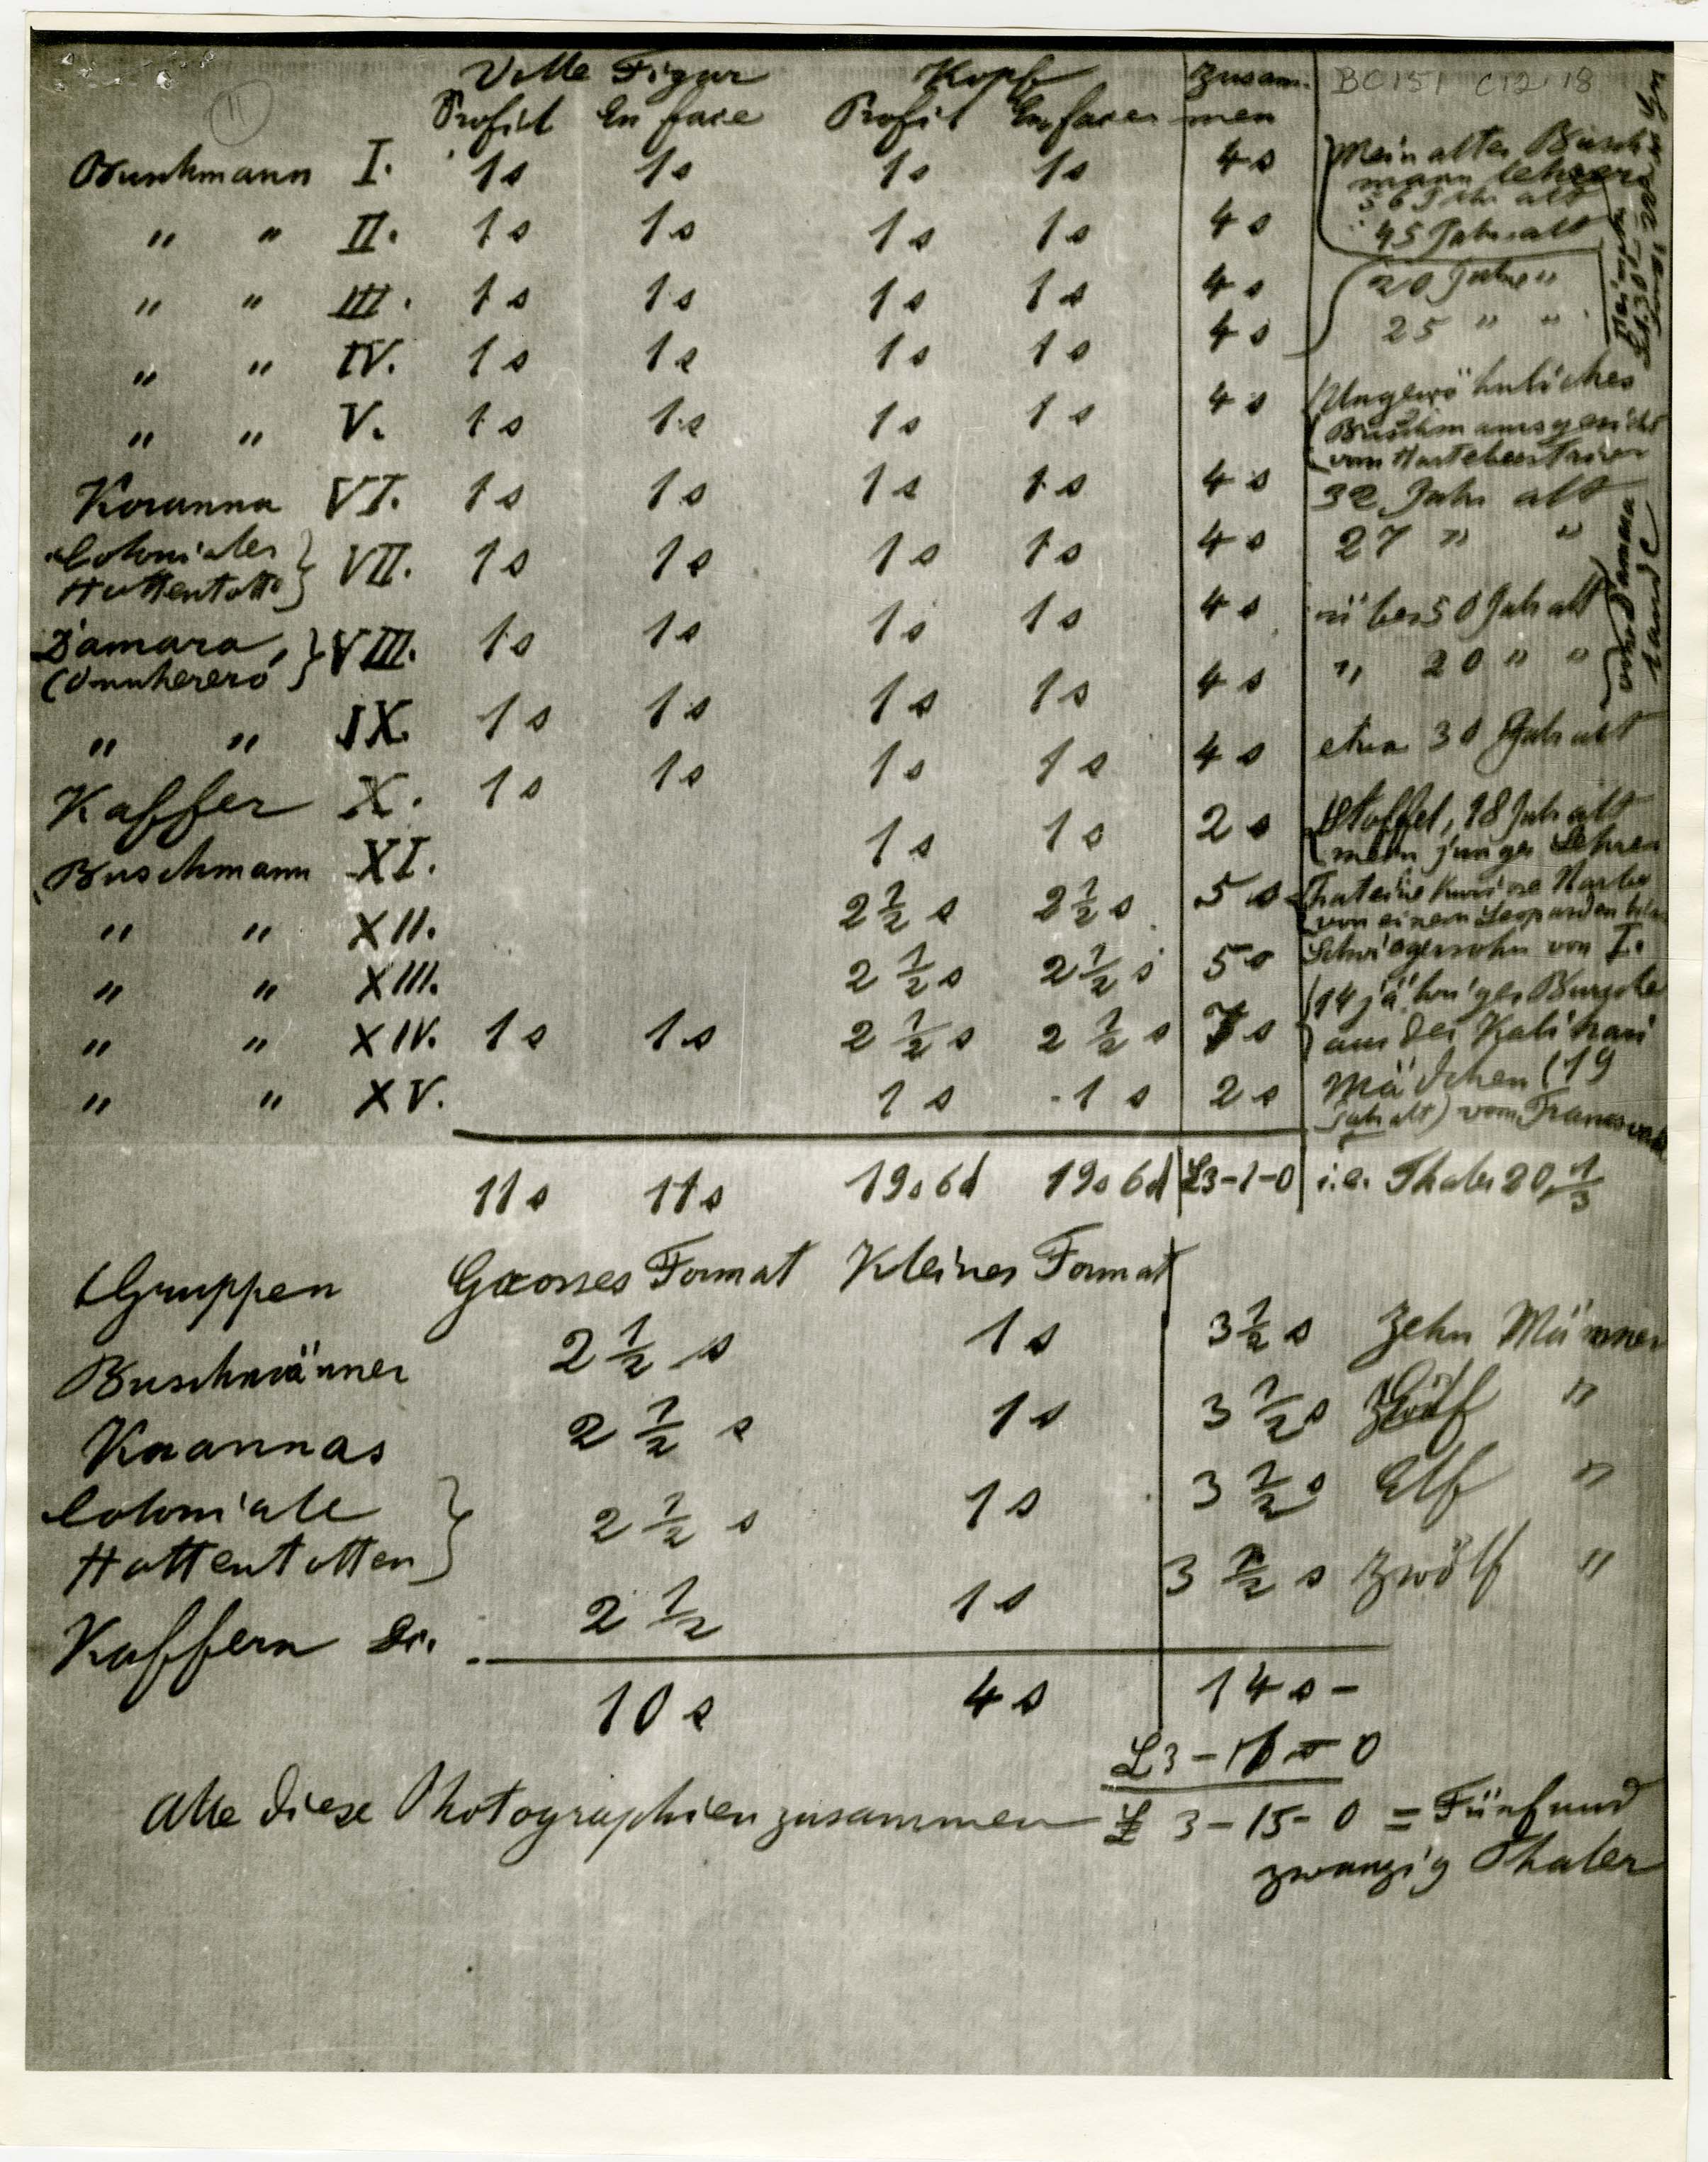 11
BC151 C12 18
Volle Figur Kopf Zusam-
Profil En face Profil En face men
Buschmann I. 1s 1s 1s 1s 4s Mein alter Busch-
mann lehrer
56 Jahr alt
" " II. 1s 1s 1s 1s 4s 45 Jahr alt
" " III. 1s 1s 1s 1s 4s 20 Jahr "
" " IV. 1s 1s 1s 1s 4s 25 " "
" " V. 1s 1s 1s 1s 4s Ungewöhnliches
Buschmannsgesicht
vom
Koranna VI. 1s 1s 1s 1s 4s 32 Jahr alt
Colonialer
Hottentott VII. 1s 1s 1s 1s 4s 27 " "
Damara,
(Ovaherero VIII. 1s 1s 1s 1s 4s über 50 Jahr alt
" " IX. 1s 1s 1s 1s 4s " 20 " "
Damara
lande
Kaffer X. 1s 1s 1s 1s 4s etwa 30 Jahr alt
Buschmann XI. 1s 1s 2s Stoffel, 18 Jahr alt
mein junger Lehrer
" " XII. 2 1/2 s 2 1/2 s 5s hat eine kuriose Narbe
von einem Leoparden
" " XIII. 2 1/2 s 2 1/2 s 5s Schwiegersohn von I.
" " XIV. 1s 1s 2 1/2 s 2 1/2 s 7s 14 jähriger Bursche
aus der Kalihari
" " XV. 1s 1s 2s Mädchen (19
Jahr alt) vom Transvaal
11s 11s 19s6d 19s6d £3-1-0 i.e. Thaler 20 1/3
Gruppen Grosses Format Kleines Format
Buschmänner 2 1/2 s 1s 3 1/2 s Zehn Männer
Koannas 2 1/2 s 1s 3 1/2 s "
Coloniale
Hottentotten 2 1/2 s 1s 3 1/2 s Elf "
Kaffern 2 1/2 1s 3 1/2 s zwölf "
10s 4s 14s-
£3-1-0
Alle diese Photographien zusammen £ 3-15-0 = Fünfund
zwanzig Thaler